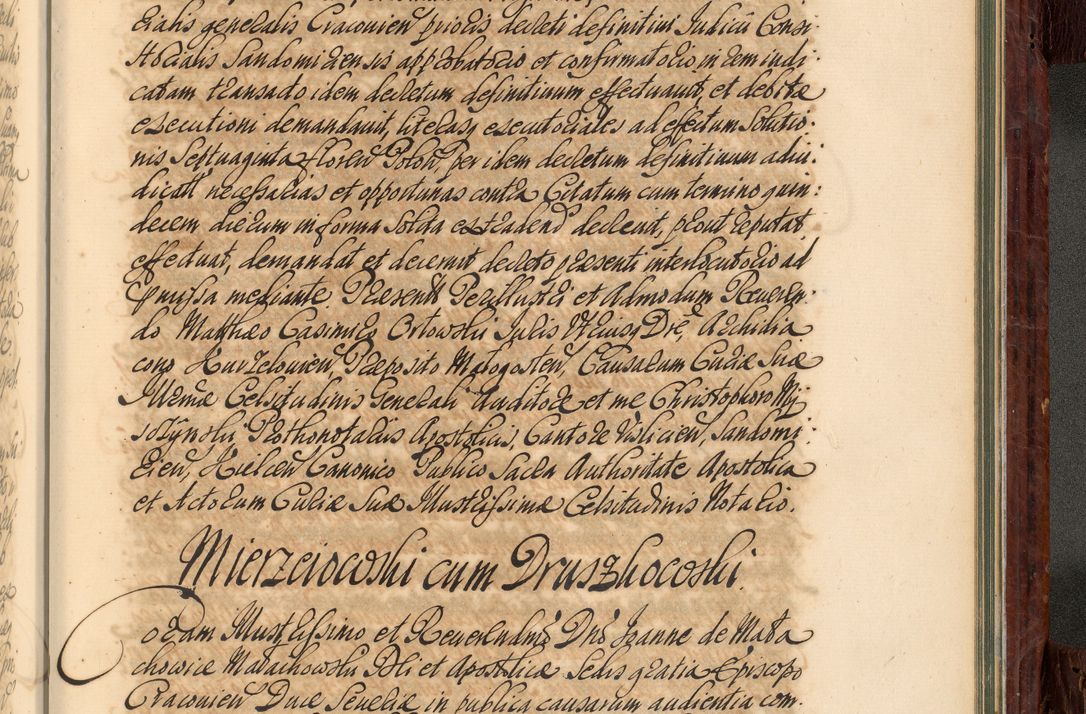 cialis generalis Cracovien prioris decreti definitivi Judicii Consi-
storialis Sandomiriensis approbatorio et confirmatorio in rem iudi-
catam transacto idem decretum definitivum effectuavit, et debitæ
executioni demandavit, literasq executoriales ad effectum Solutio-
nis Septuaginta floren Polon, per idem decretum definitivum adiu-
dicatt necessarias et opportunas contra Citatum cum termino quin-
decem dierum in forma Solita extradend decrevit, prout reputat
effectuat, demandat et decernit decreto præsenti interlocutorio ad
præmissa mediante. Præsentt Perillustri et Admodum Reveren-
do Matthæo Casimiro Ortowski Juris Utriusq Dre, Archidia
cono Kurzelovien, Præposito Matogosten, Causarum Curiæ Suæ
Illmæ Celsitudinis Generali Auditore et me Christophoro My
Protonotariis Apostolicis, Cantore Vislicien, Sandomi-
rien, Kielcen Canonico Publico Sacra Authoritate Apostolica
et Actorum Curiæ Suæ Illustrissimæ Celsitudinis Notario.
Mierzeiowski cum Druszkocoski.
Coram Illustrissimo et Reverendmo Dno Joanne de Mała
chowice Małachowski Dei et Apostolicæ Sedis gratia Episcopo
Cracovien Duce Severiæ in publica causarum audientia com-